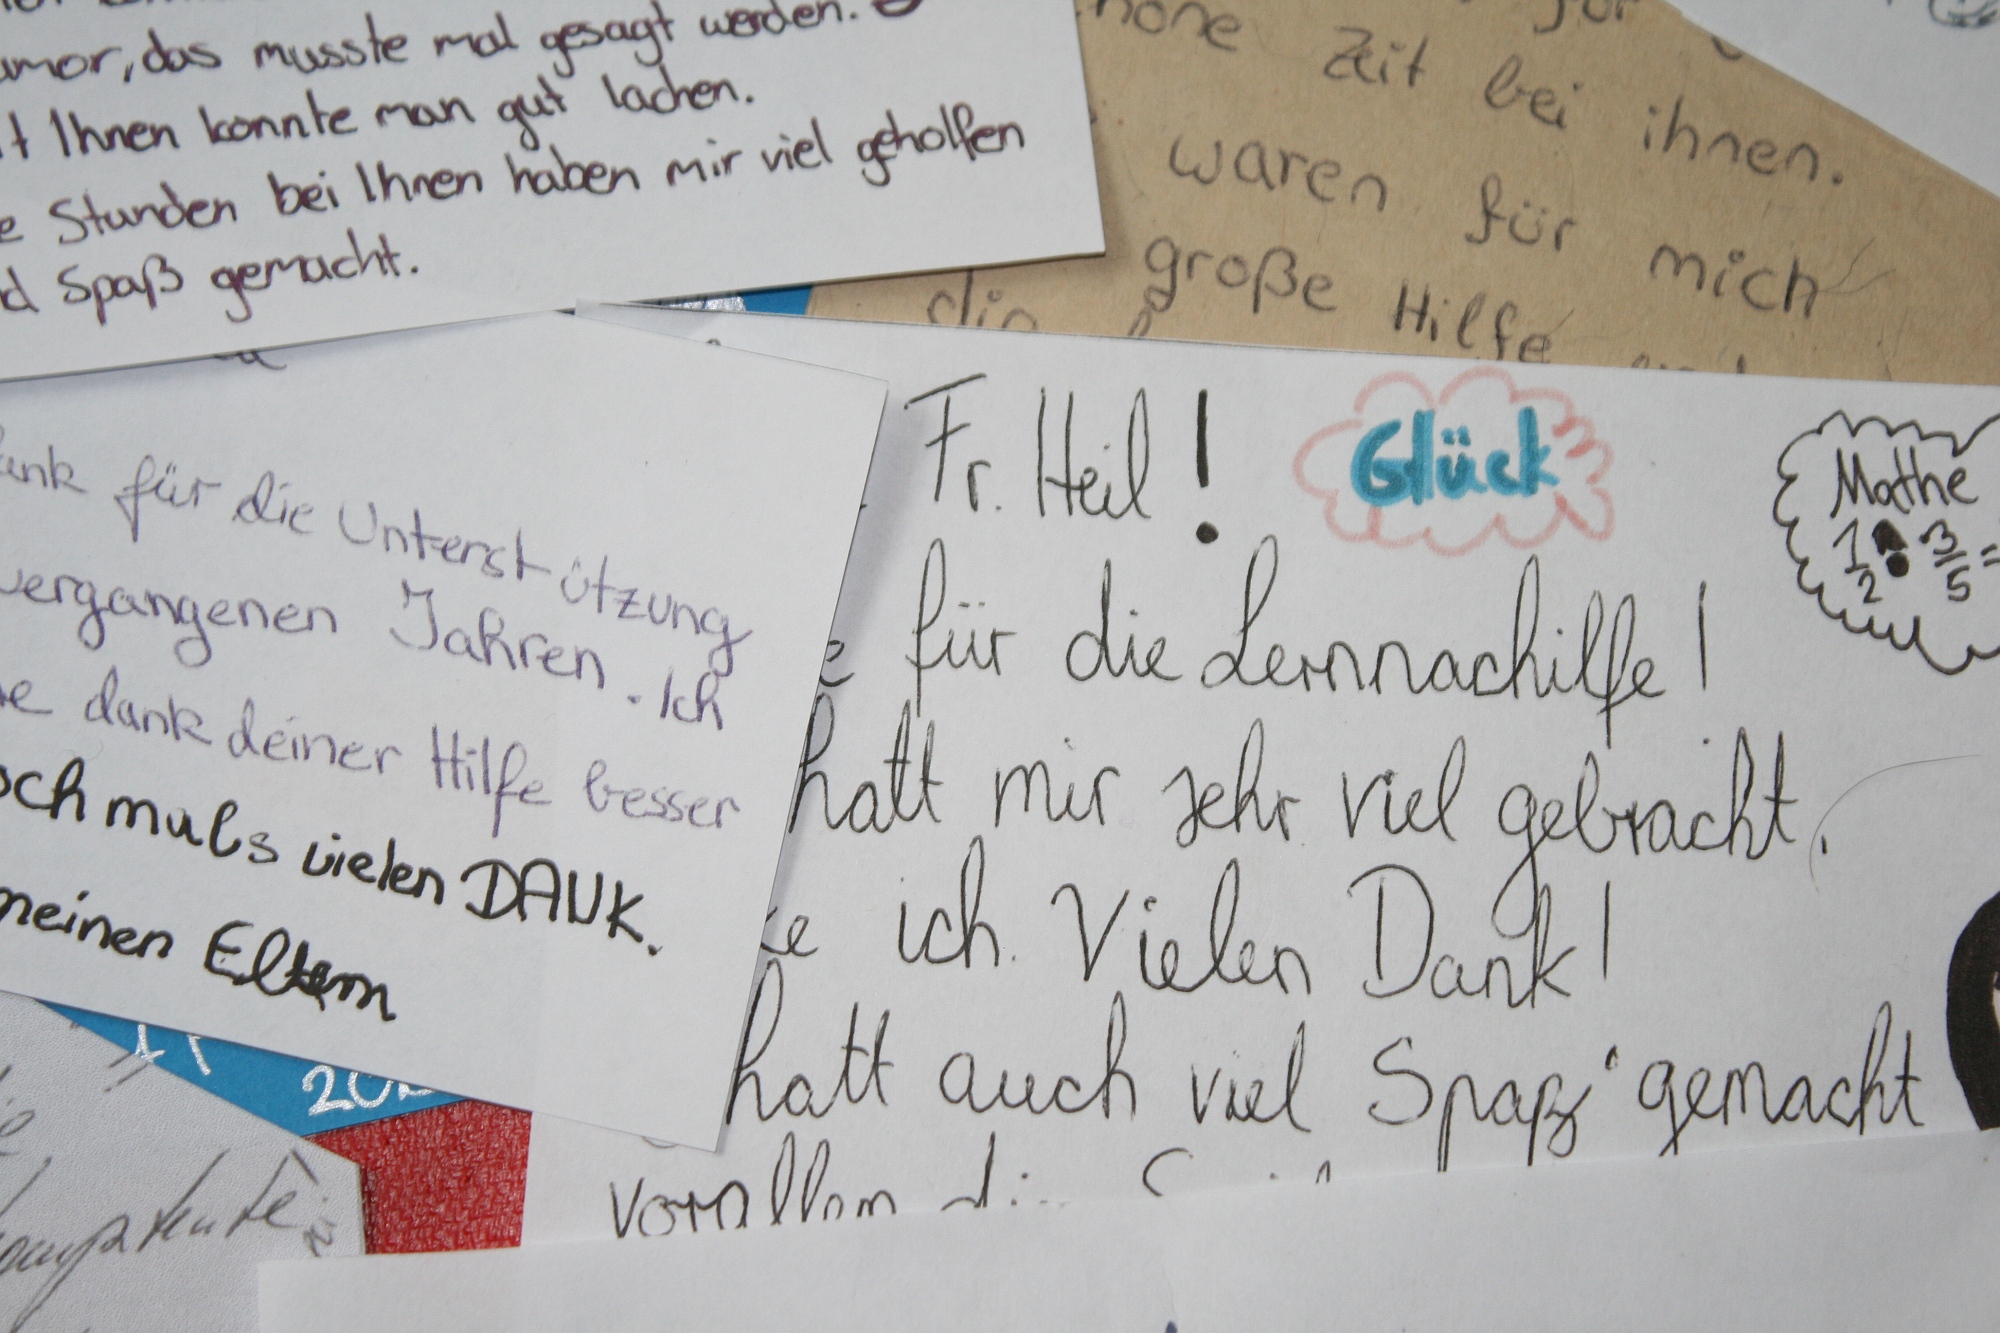 das musste mal gesagt werden.
Ihnen konnte man gut lachen.
Stunden bei Ihnen haben mir viel geholfen
Spaß gemacht.
Zeit bei ihnen.
waren für mich
große Hilfe
für die Unterstützung
vergangenen Jahren. Ich
dank deiner Hilfe besser
vielen DANK.
meinen Eltern
Fr. Heil!
Glück
Mathe
1/2 • 3/5 =
für die Lernnachilfe!
hatt mir sehr viel gebracht.
ich. Vielen Dank!
hatt auch viel Spaß gemacht